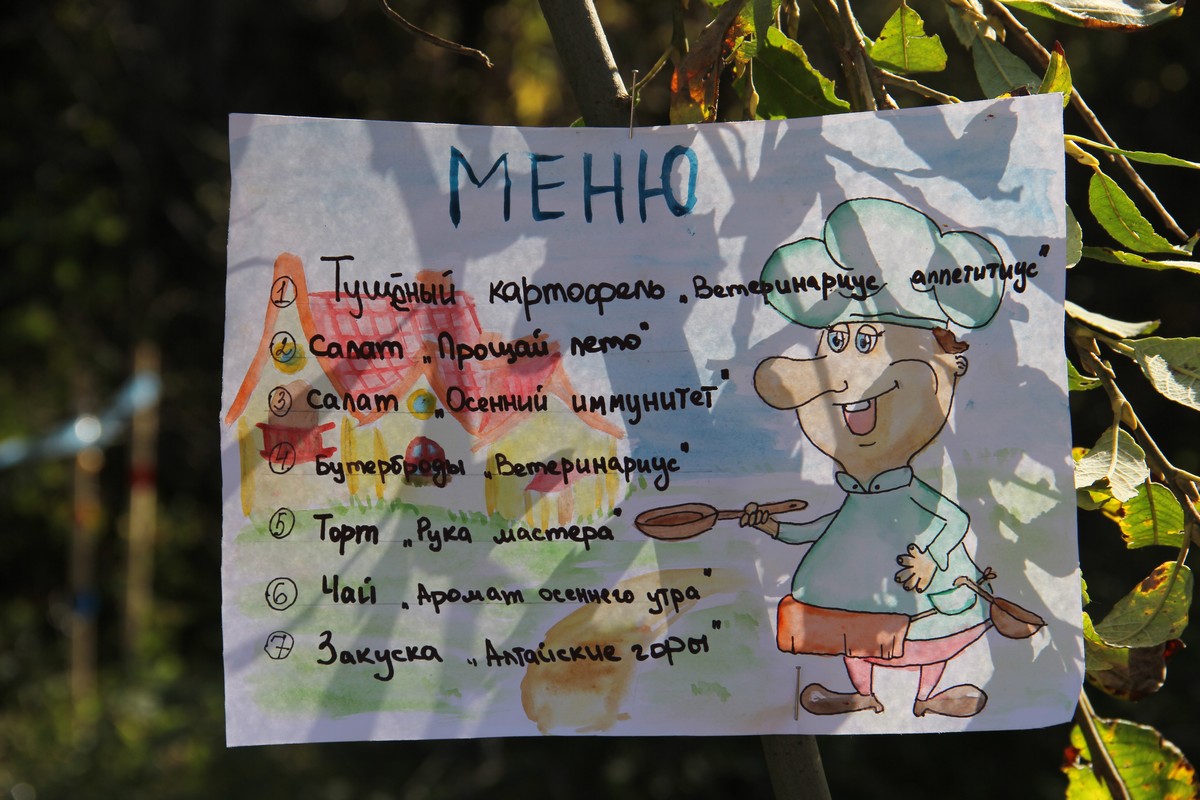 МЕНЮ
1 Тушёный картофель „Ветеринариус аппетитиус"
2 Салат „Прощай лето"
3 Салат „Осенний иммунитет"
4 Бутерброды „Ветеринариус"
5 Торт „Рука мастера"
6 Чай „Аромат осеннего утра"
7 Закуска „Алтайские горы"